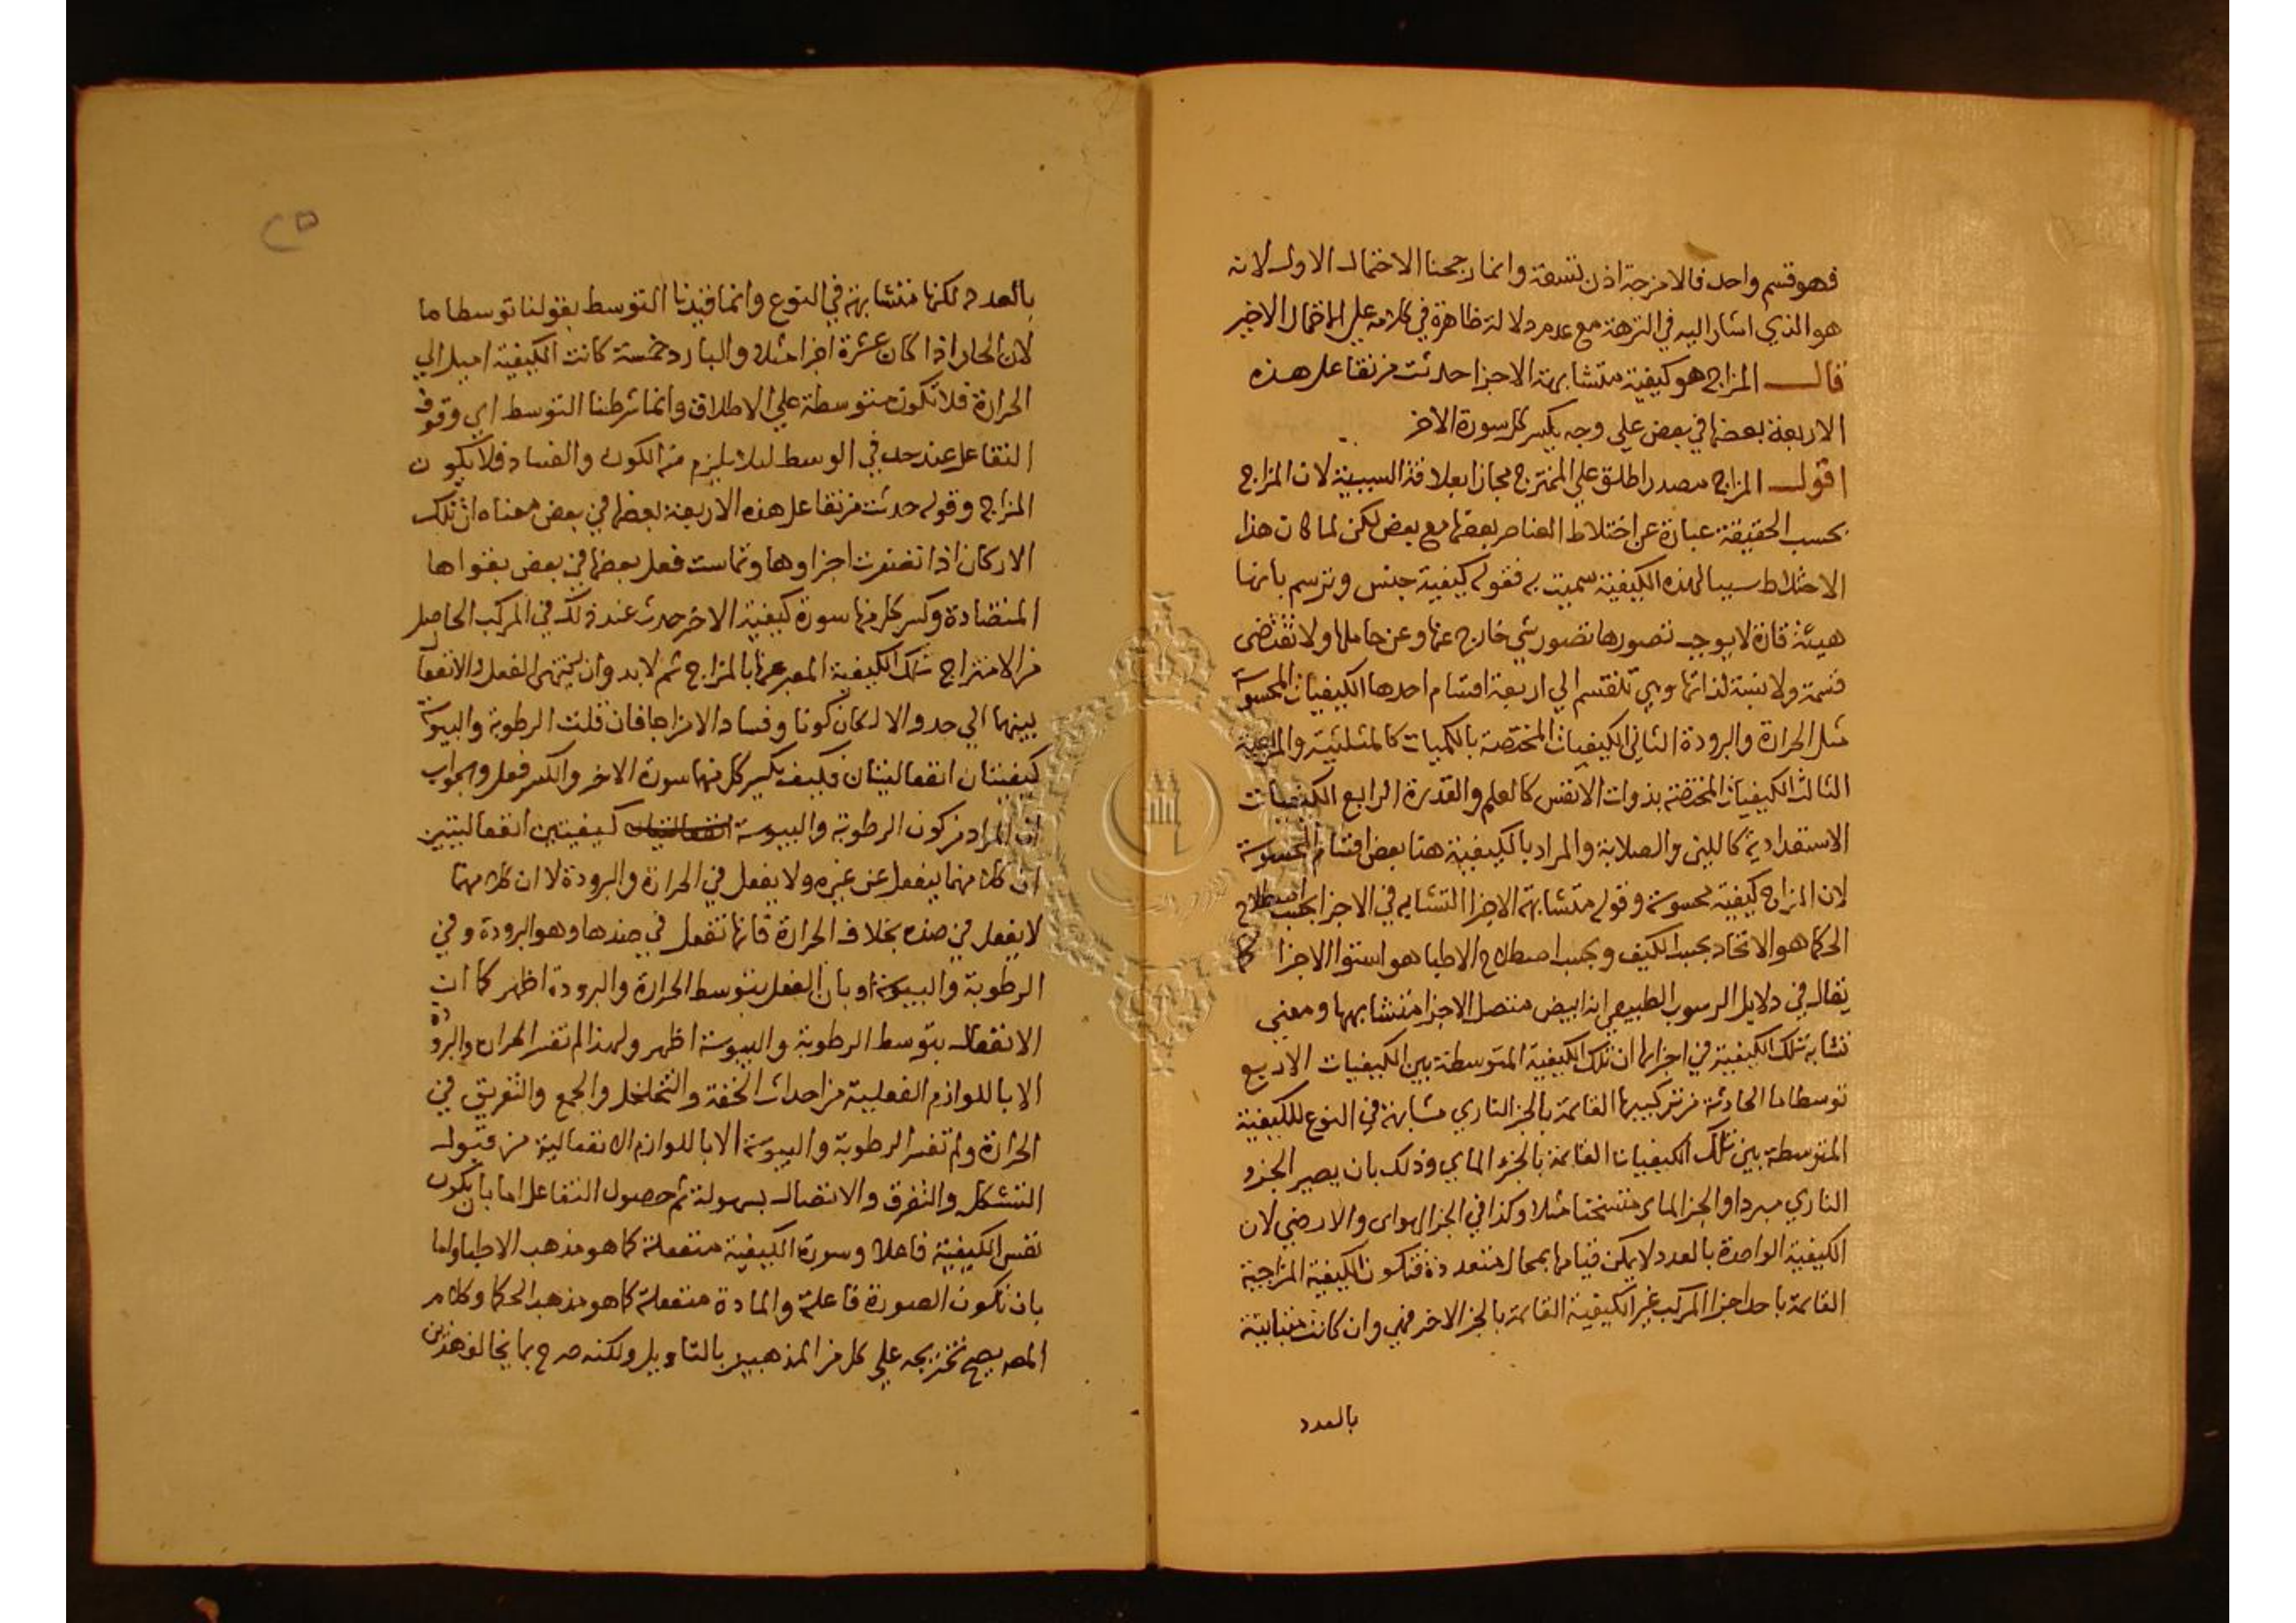 فهو قسم واحد فالامزجة اذن تسعة وانما رجحنا الاحتمال الاول لانه
هو الذي اشار اليه في النزهة مع عدم دلالة ظاهرة في كلامه علي الاحتمال الاخير
قال المزاج هو كيفية متشابهة الاجزا حدثت من تفاعل هذه
الاربعة بعضها في بعض علي وجه يكسر كل سورة الاخر
اقول المزاج مصدر اطلق علي الممتزج مجازا بعلاقة السببية لان المزاج
بحسب الحقيقة عبارة عن اختلاط العناصر بعضها مع بعض لكن لما كان هذا
الاختلاط سببا لهذه الكيفية سميت به فقوله كيفية جنس وترسم بانها
هيئة قارة لا يوجب تصورها تصور شي خارج عنها وعن حاملها ولا تقتضى
قسمة ولا نسبة لذاتها وهي تنقسم الي اربعة اقسام احدها الكيفيات المحسوسة
مثل الحرارة والبرودة الثاني الكيفيات المختصة بالكميات كالمثلثية والمربعية
الثالث الكيفيات المختصة بذوات الانفس كالعلم والقدرة الرابع الكيفيات
الاستعدادية كاللين والصلابة والمراد بالكيفية هنا بعض اقسام المحسوسة
لان المزاج كيفية محسوسة وقوله متشابهة الاجزا التشابه في الاجزا بحسب اصطلاح
الحكما هو الاتحاد بحسب الكيف وبحسب اصطلاح الاطبا هو استوا الاجزا كما
يقال في دلايل الرسوب الطبيعي انه ابيض متصل الاجزا متشابهها ومعني
تشابه تلك الكيفية في اجزائها ان تلك الكيفية المتوسطة بين الكيفيات الاربع
توسطا ما الحادثة من تركيبها القائمة بالجز الناري مشابهة في النوع للكيفية
المتوسطة بين تلك الكيفيات القائمة بالجزء الماي وذلك بان يصير الجزء
الناري مبردا والجز الماى متسخنا مثلا وكذا في الجز الهواى والارضي لان
الكيفية الواحدة بالعدد لا يمكن قيامها بمحال متعددة فتكون الكيفية المزاجية
القائمة باحد اجزا المركب غير الكيفية القائمة بالجز الاخر فهي وان كانت متباينة
بالعدد
٢٥
بالعدد لكنها متشابهة في النوع وانما قيدنا التوسط بقولنا توسطا ما
لان الحار اذا كان عشرة اجزا مثلا والبارد خمسة كانت الكيفية اميل الي
الحرارة فلا تكون متوسطة علي الاطلاق وانما شرطنا التوسط اي وقوف
التفاعل عند حد في الوسط ليلا يلزم منه الكون والفساد فلا يكون
المزاج وقوله حدثت من تفاعل هذه الاربعة بعضها في بعض معناه ان تلك
الاركان اذا تصغرت اجزاوها وتماست فعل بعضها في بعض بقواها
المتضادة وكسر كل منها سورة كيفية الاخر حدث عند ذلك في المركب الحاصل
من الامتزاج تلك الكيفية المعبر عنها بالمزاج ثم لا بد وان ينتهى الفعل والانفعال
بينهما الي حد والا لكان كونا وفسادا لا مزاجا فان قلت الرطوبة واليبوسة
كيفيتان انفعاليتان فكيف يكسر كل منهما سورة الاخر والكسر فعل والجواب
ان المراد من كون الرطوبة واليبوسة كيفيتين انفعاليتين
ان كلا منهما ينفعل عن غيره ولا يفعل في الحرارة والبرودة لا ان كلا منهما
لا يفعل في ضده بخلاف الحرارة فانها تفعل في ضدها وهو البرودة وفي
الرطوبة واليبوسة او بان الفعل بتوسط الحرارة والبرودة اظهر كما ان
الانفعال بتوسط الرطوبة واليبوسة اظهر ولهذا لم تفسر الحرارة والبرودة
الا باللوازم الفعلية من احداث الخفة والتخلخل والجمع والتفريق في
الحرارة ولم تفسر الرطوبة واليبوسة الا باللوازم الانفعالية من قبول
التشكل والتفرق والاتصال بسهولة ثم حصول التفاعل اما بان يكون
نفس الكيفية فاعلا وسورة الكيفية منفعلة كما هو مذهب الاطبا واما
بان تكون الصورة فاعلة والمادة منفعلة كما هو مذهب الحكما وكلام
المصه يصح تخريجه علي كل من المذهبين بالتاويل ولكنه صرح بما يخالف هذين